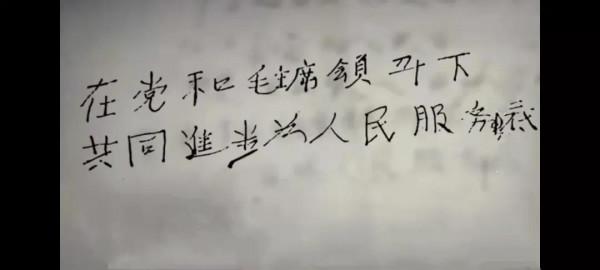 在党和毛主席領导下
共同進步为人民服务到底